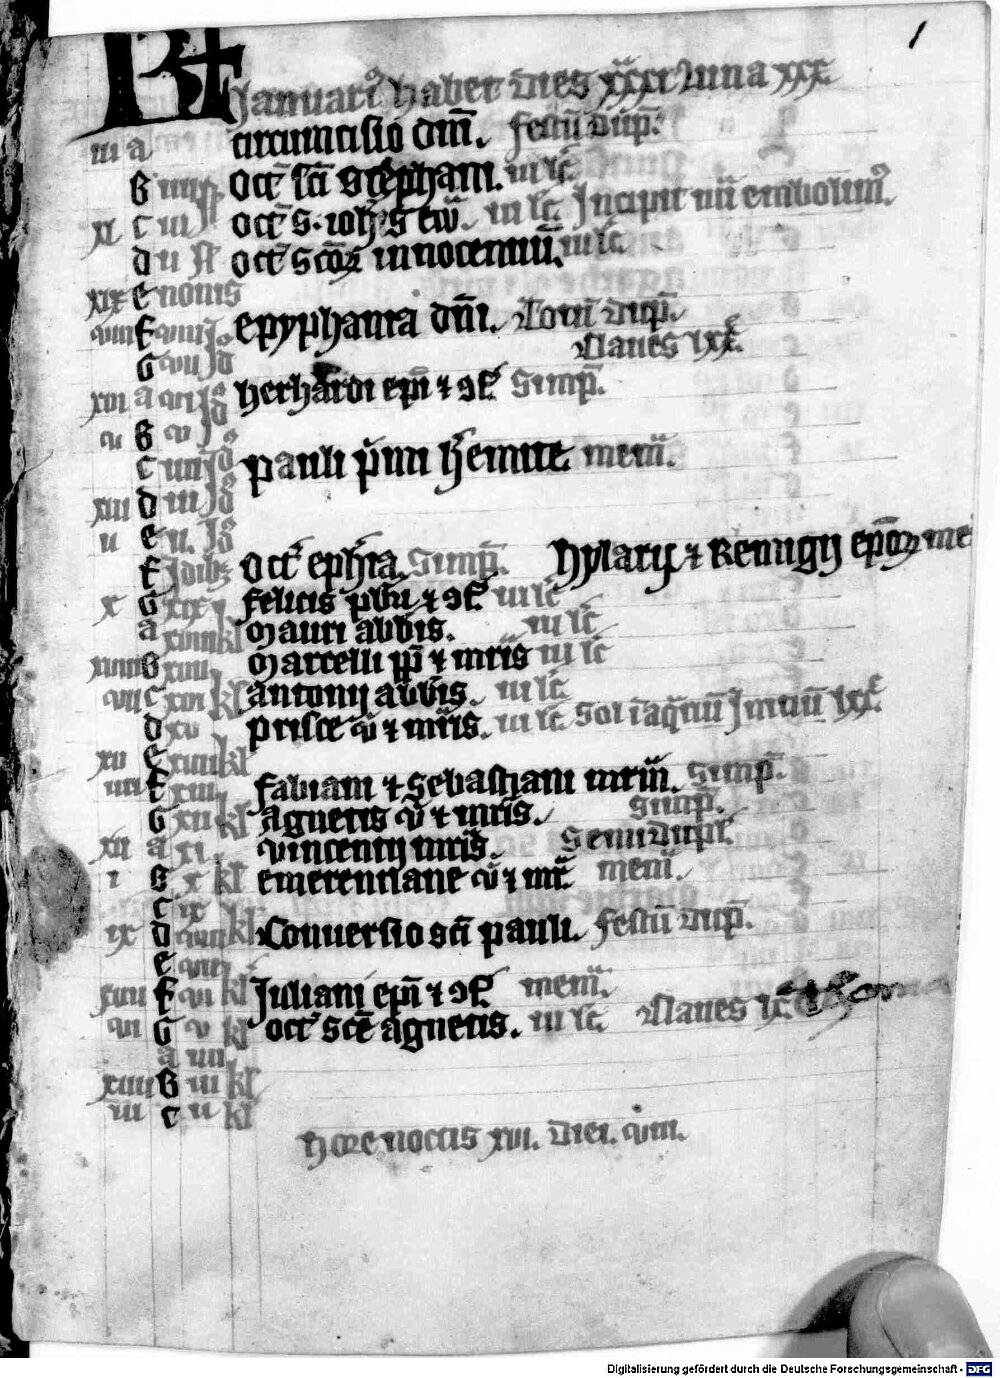 1
KL Januariꝰ habet dies xxxi Luna xxx
iii a circumcisio dn̄i. festū dup̄.
b iiii oct̄ sc̄i stephani. iii lc̄
xi c iii oct̄ s. ioh̄is ew̄. iii lc̄ Incipit iiii embolimꝰ.
d ii oct̄ sc̄oꝝ innocentiū. iii lc̄.
xix e nonis
viii f viii Id epyphania dn̄i. Totū dup̄.
g vii Id Claues lxx.
xvi a vi Id herhardi ep̄i ⁊ ꝯf. Simp̄.
v b v Id
c iiii Id pauli p̄mi h̄emite. mem̄.
xiii d iii Id
ii e ii. Id
f Idibꝫ oct̄ eph̄ia. Simp̄. hylarij ⁊ Remigij ep̄oꝝ me
x g xix felicis p̄bri ⁊ ꝯf. iii lc̄
a xviii kl mauri abbis. iii lc̄
xviii b xvii marcelli p̄p ⁊ mr̄is iii lc̄
vii c xvi kl antonij abbis. iii lc̄
d xv prisce v̄ ⁊ mr̄is. iii lc̄. Sol ī aq̄riū Initiū lxx.
xv e xiiii kl
iiii f xiii fabiani ⁊ Sebastiani mrm̄. Simp̄.
g xii kl agnetis v̄ ⁊ mr̄is. Simp̄.
xii a xi. vincentij mr̄is. Semidupl̄.
i b x kl emerentiane v̄ ⁊ mr̄. mem̄.
c ix
ix d viii kl Conuersio sc̄i pauli. festū dup̄.
e vii
xvii f vi kl Juliani ep̄i ⁊ ꝯf. mem̄.
vi g v kl oct̄ sc̄e agnetis. iii lc̄. Claues
a iiii
xiiii b iii kl
iii c ii kl
hore noctis xvi. Diei. viii.
Digitalisierung gefördert durch die Deutsche Forschungsgemeinschaft - DFG